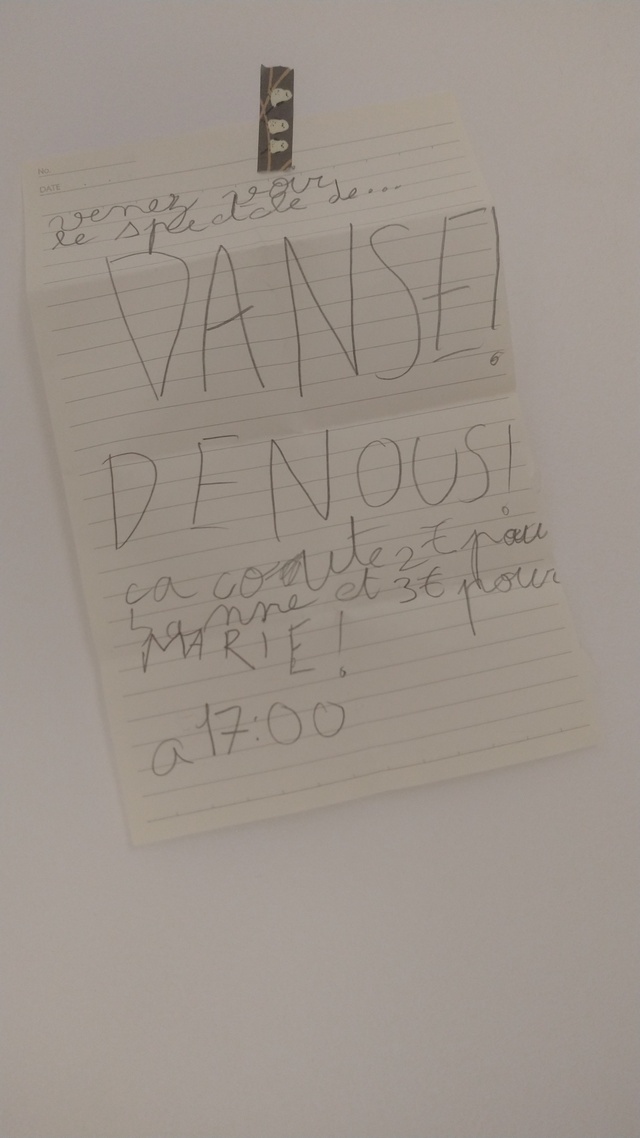 No.
DATE
venez voir
le spectacle de...
DANSE!
DE NOUS!
ca coute 2€ pour
et 3€ pour
MARIE!
a 17:00